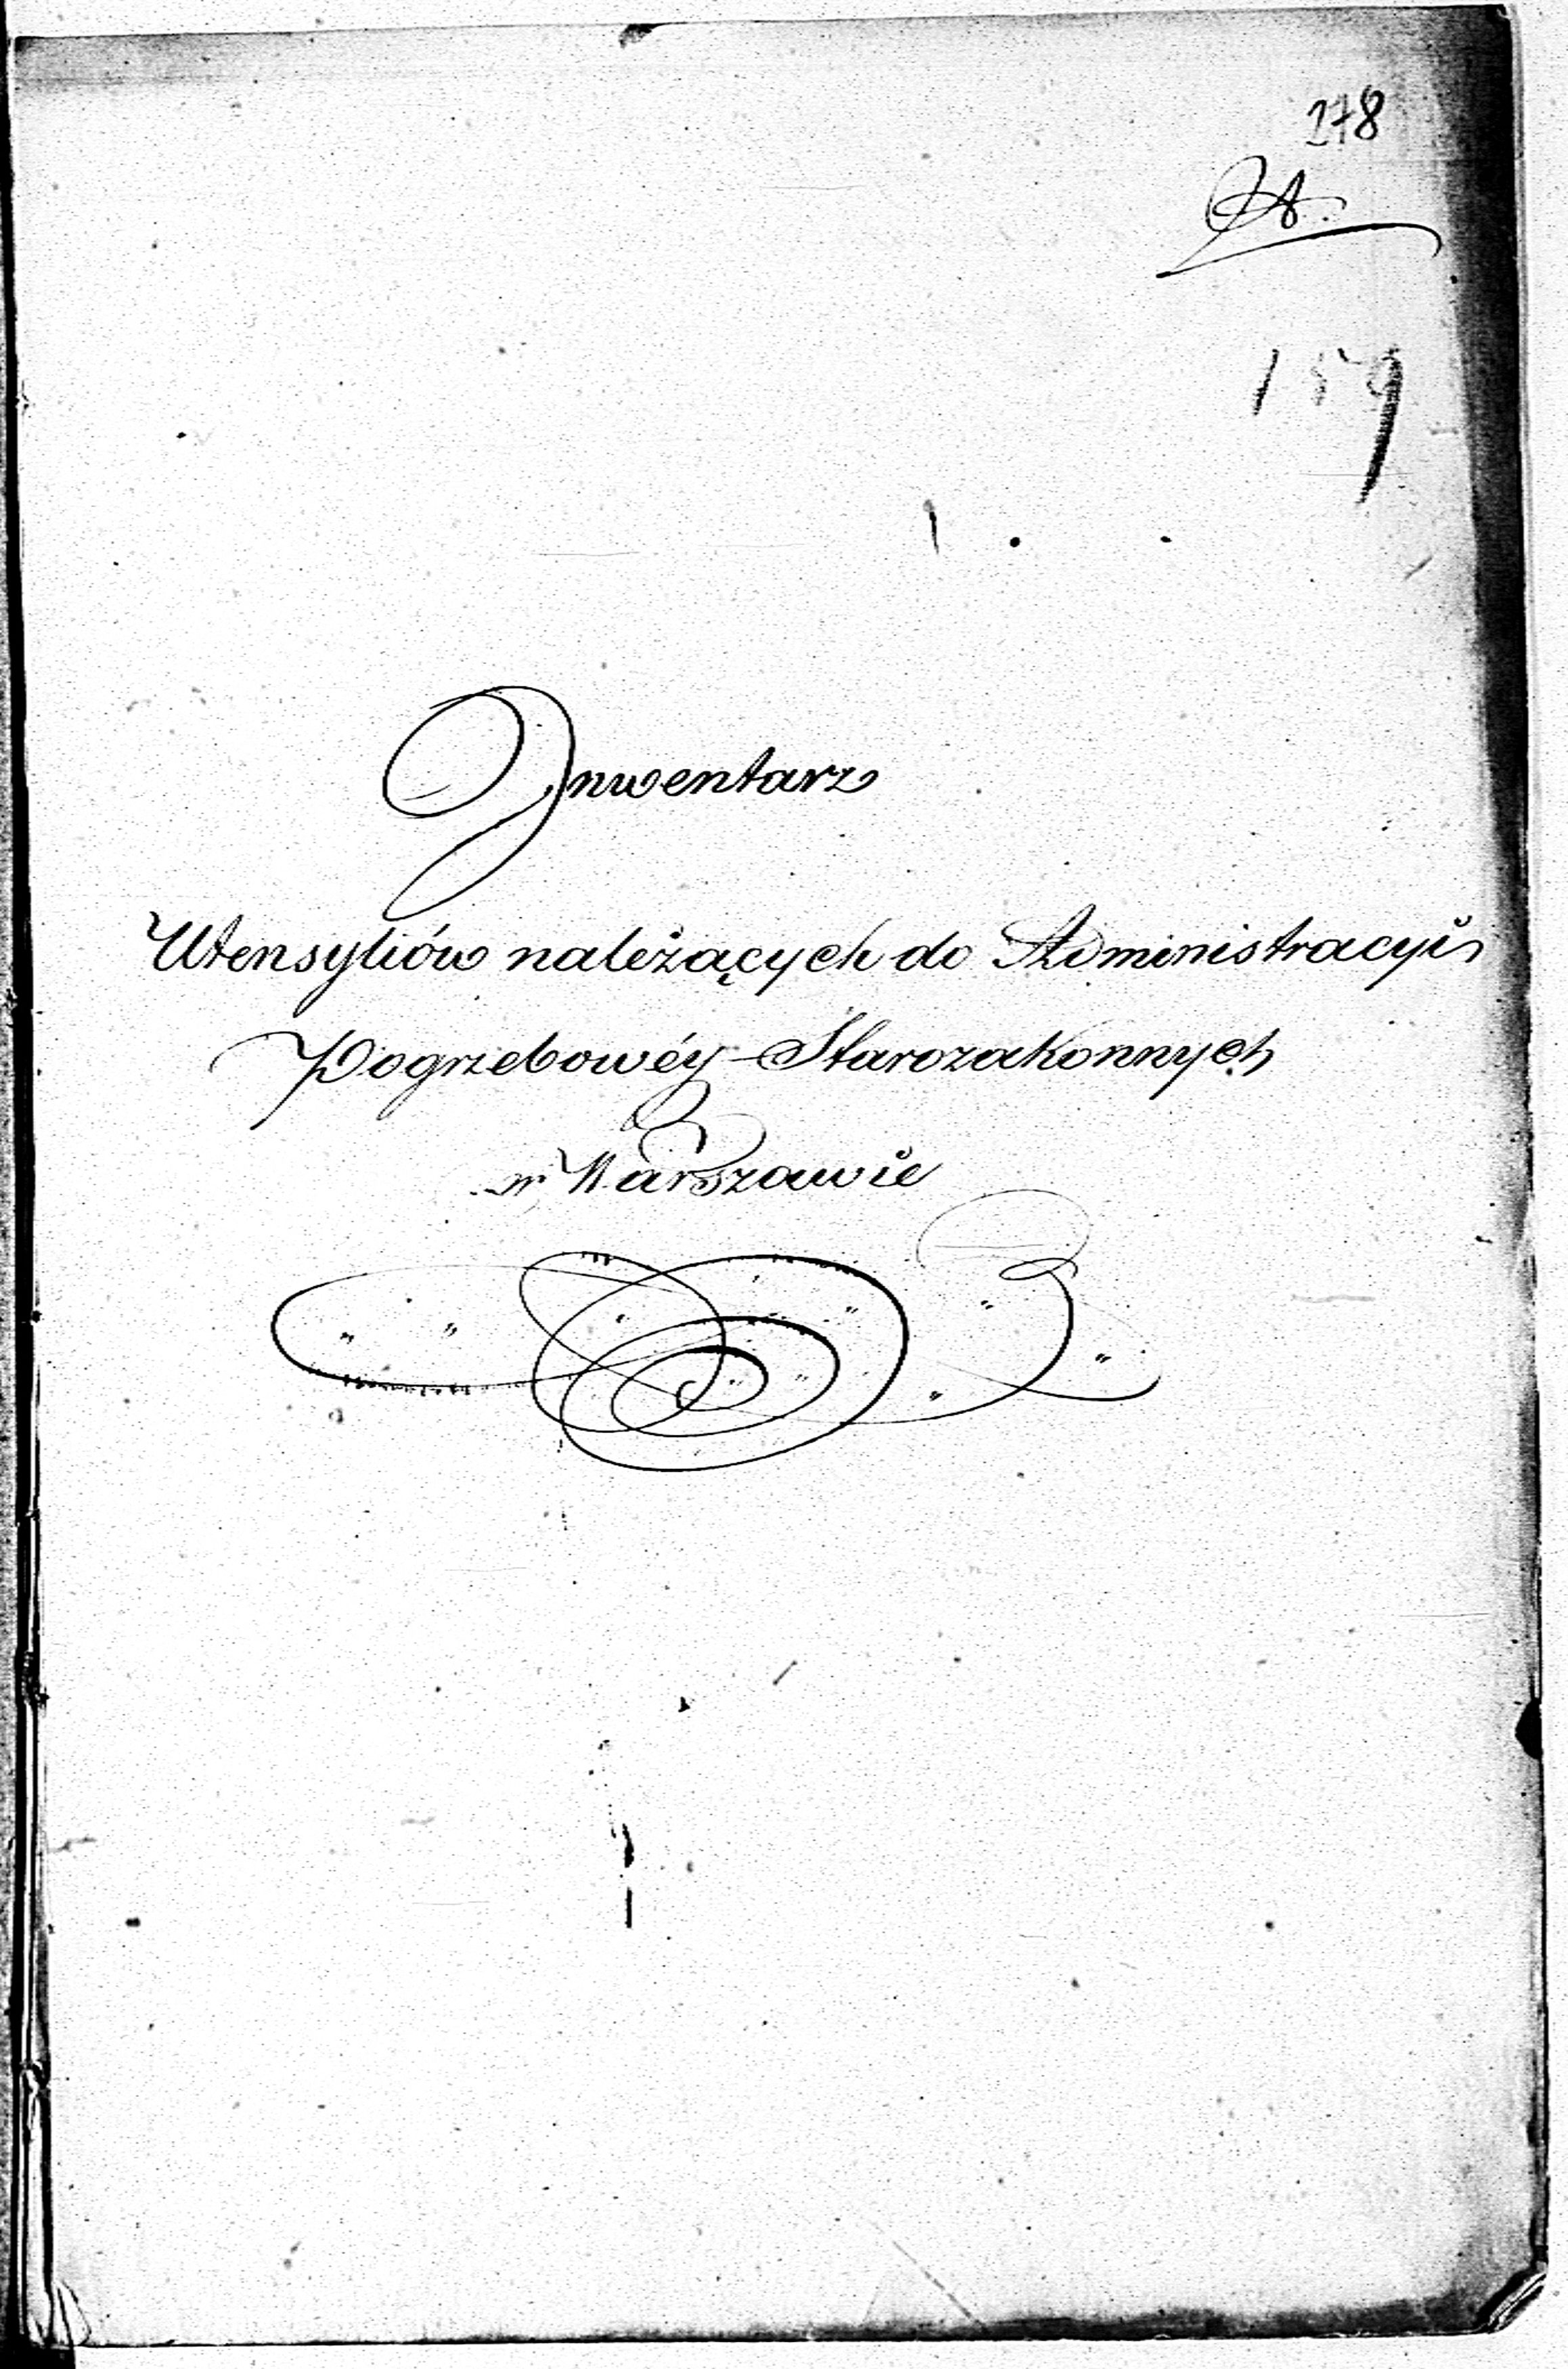 178
A.
159
Inwentarz
Utensyliów należących do Administracyi
Pogrzebowéy Starozakonnych
w Warszawie